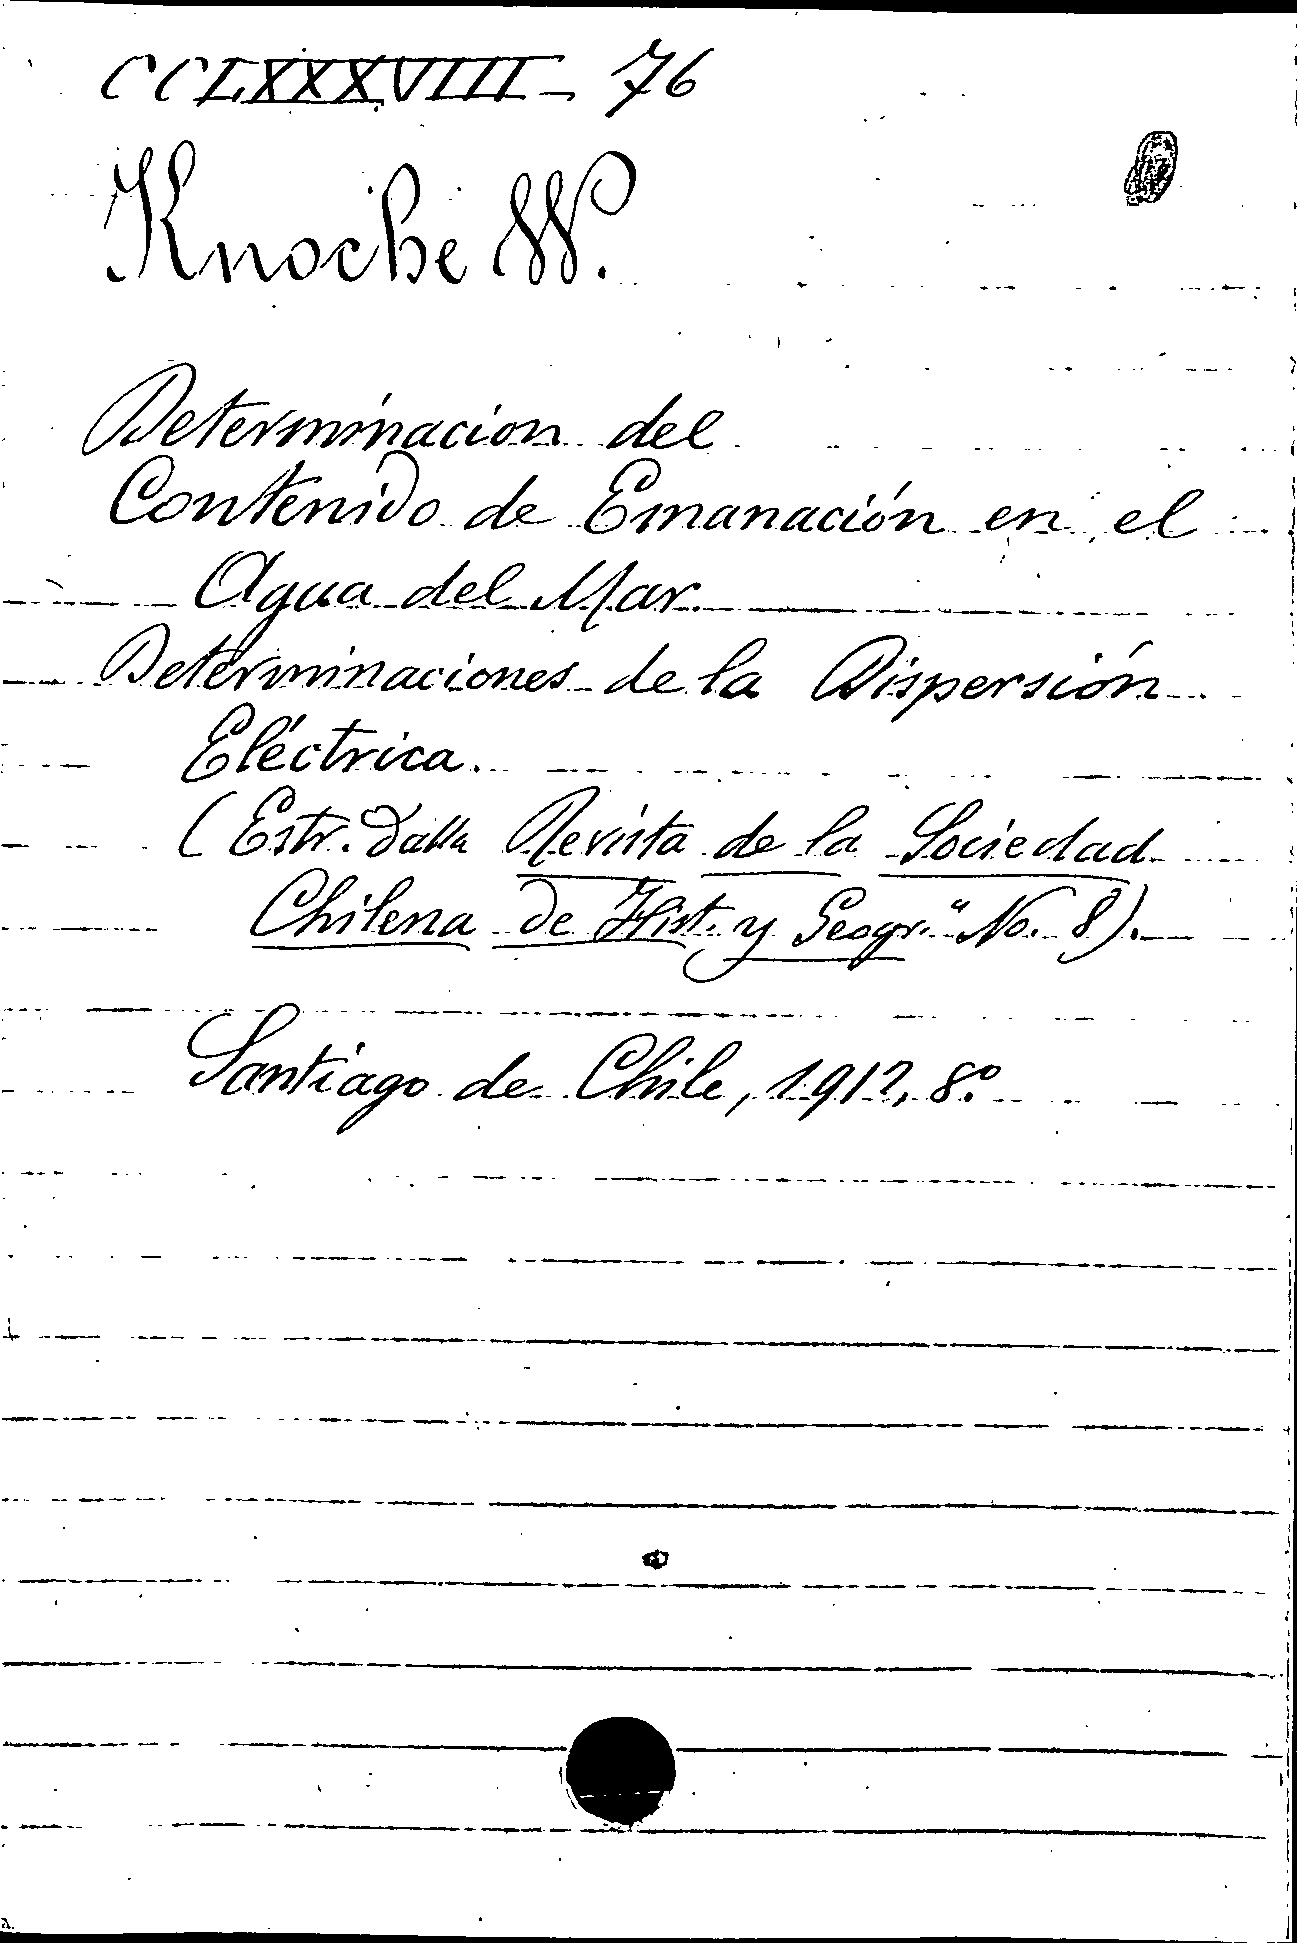 CCLXXXVIII - 76
Knoche W.
Determinacion del
Contenido de Emanación en el
Agua del Mar.
Determinaciones de la Dispersión
Eléctrica.
(Estr. dalla Revista de la Sociedad
Chilena de Hist. y Geogr." No. 8).
Santiago de Chile, 1912, 8.º